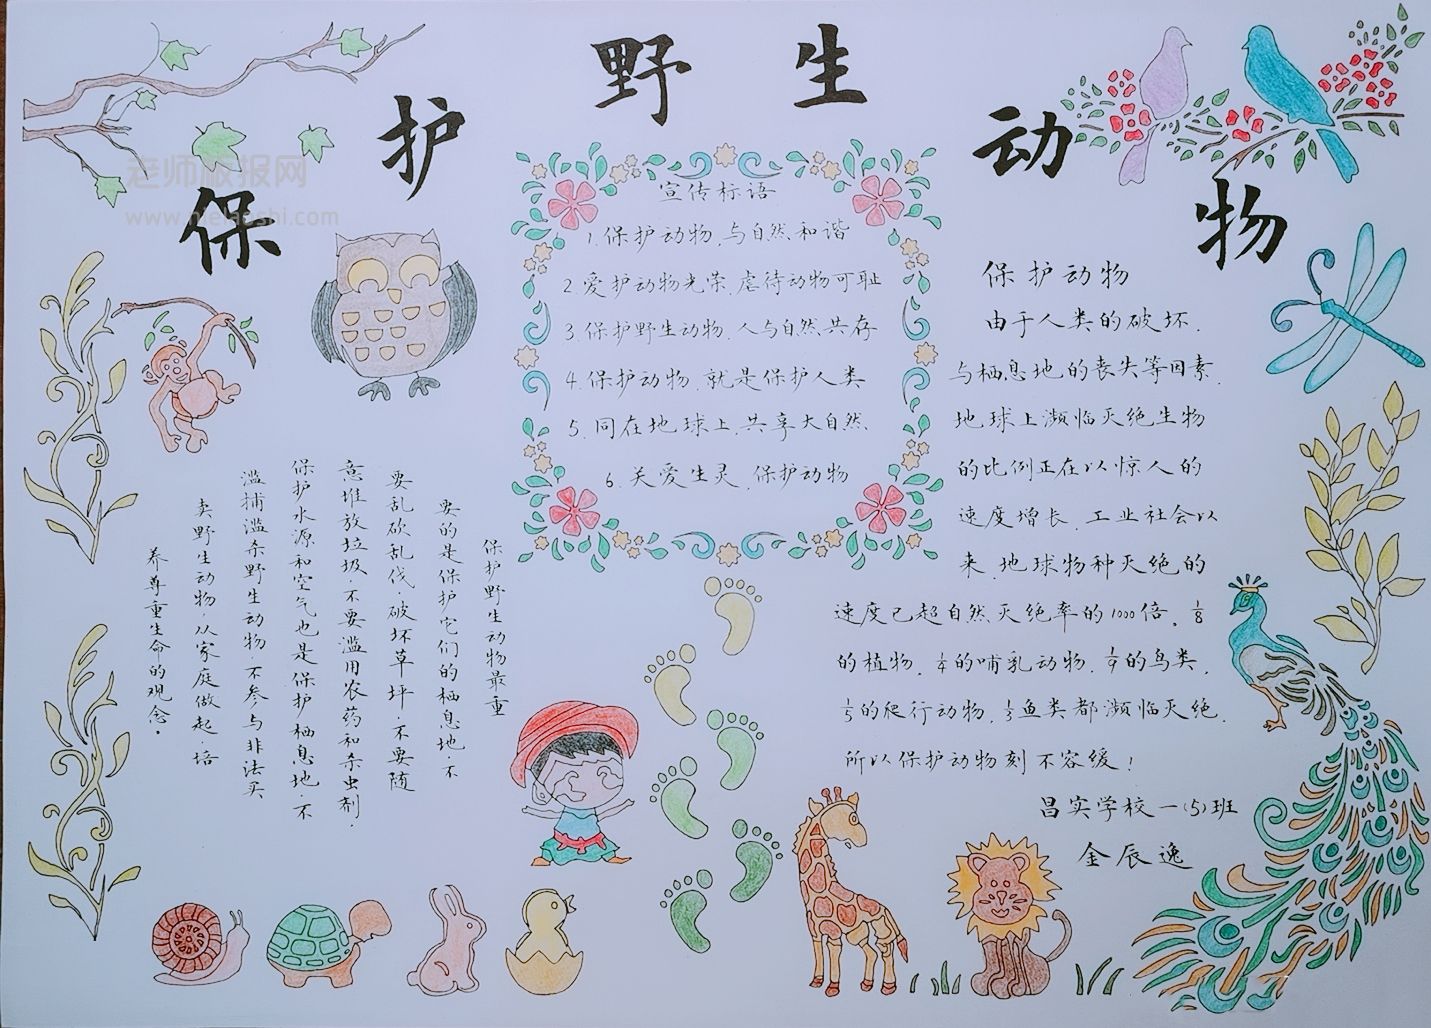 保护野生动物
老师板报网
宣传标语
1.保护动物,与自然和谐
2.爱护动物光荣,虐待动物可耻
3.保护野生动物,人与自然共存
4.保护动物,就是保护人类
5.同在地球上,共享大自然
6.关爱生灵,保护动物
保护动物
由于人类的破坏,
与栖息地的丧失等因素,
地球上濒临灭绝生物
的比例正在以惊人的
速度增长,工业社会以
来,地球物种灭绝的
速度已超自然灭绝率的1000倍。1/8
的植物,1/4的哺乳动物,1/9的鸟类,
1/5的爬行动物,1/3鱼类都濒临灭绝.
所以保护动物刻不容缓!
昌实学校一(5)班
金辰逸
保护野生动物最重
要的是保护它们的栖息地.不
要乱砍乱伐.破坏草坪.不要随
意堆放垃圾.不要滥用农药和杀虫剂.
保护水源和空气也是保护栖息地.不
滥捕滥杀野生动物.不参与非法买
卖野生动物 从家庭做起 培
养尊重生命的观念.